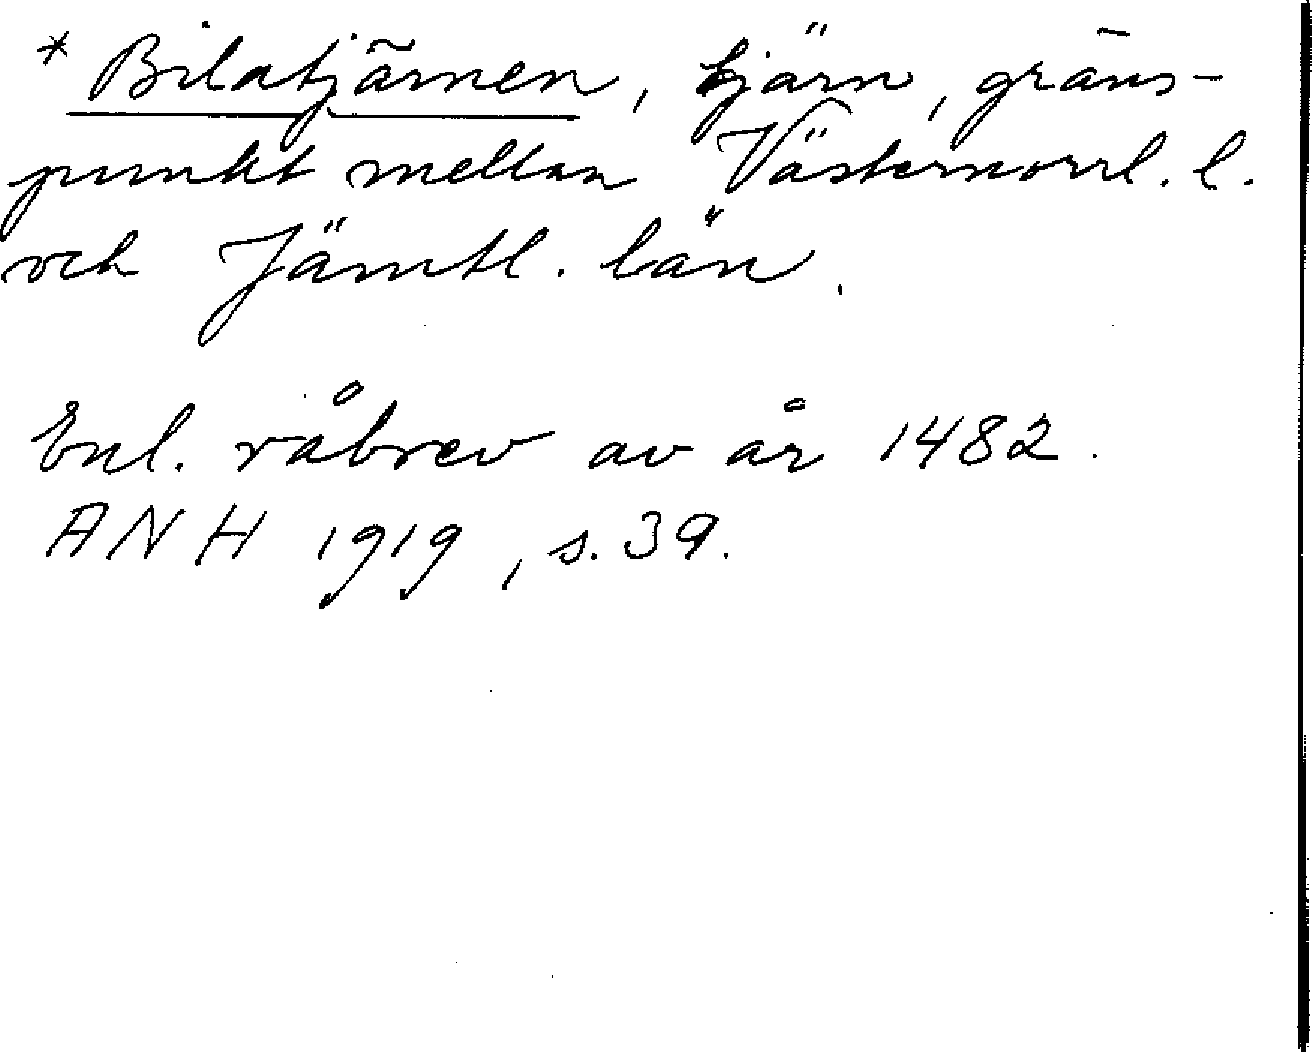 * Bilatjärnen, tjärn, gräns-
punkt mellan Västernorrl. l.
och Jämtl. län.
Enl. råbrev av år 1482.
ANH 1919, s. 39.